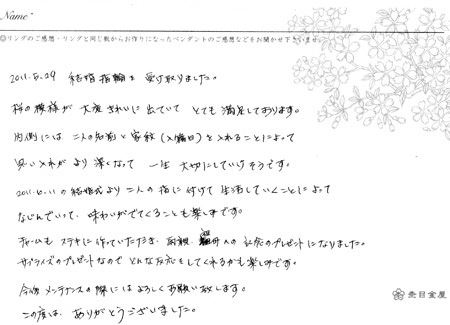 Name
◎リングのご感想・リングと同じ靴からお作りになったペンダントのご感想などをお聞かせ下さいませ。
2011.5.29 結婚指輪を受け取りました。
桜の模様が大変きれいに出ていてとても満足しております。
内側には二人の名前と家紋(入籍日)を入れることによって
思い入れがより深くなって一生大切にしていけそうです。
2011.6.11の結婚式より二人の指に付けて生活していくことによって
なじんでいって、味わいがでてくることも楽しみです。
チャームもステキに作っていただき、両親、祖母への記念のプレゼントになりました。
サプライズのプレゼントなのでどんな反応をしてくれるかも楽しみです。
今後メンテナンスの際にはよろしくお願い致します。
この度は、ありがとうございました。
杢目金屋